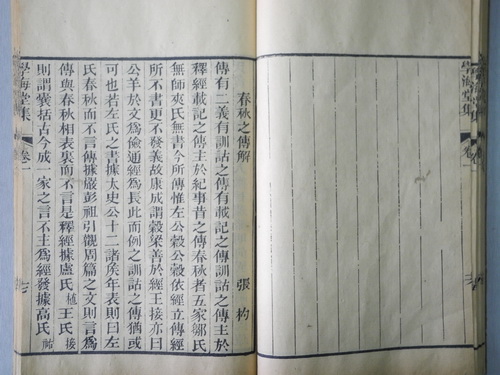 春秋之傳解
張杓
傳有二義有訓詁之傳有載記之傳訓詁之傳主於
釋經載記之傳主於紀事昔之傳春秋者五家鄒氏
無師夾氏無書今所傳惟左公穀公穀依經立傳經
所不書更不發義故康成謂穀梁善於經王接亦曰
公羊於文為儉通經為長此而例之訓詁之傳猶或
可也若左氏之書據太史公十二諸侯年表則曰左
氏春秋而不言傳據嚴彭祖引觀周篇之文則言為
傳與春秋相表裏而不言是釋經據盧氏植王氏接
則謂囊括古今成一家之言不主為經發據高氏祐
學海堂集
卷一
學海堂集